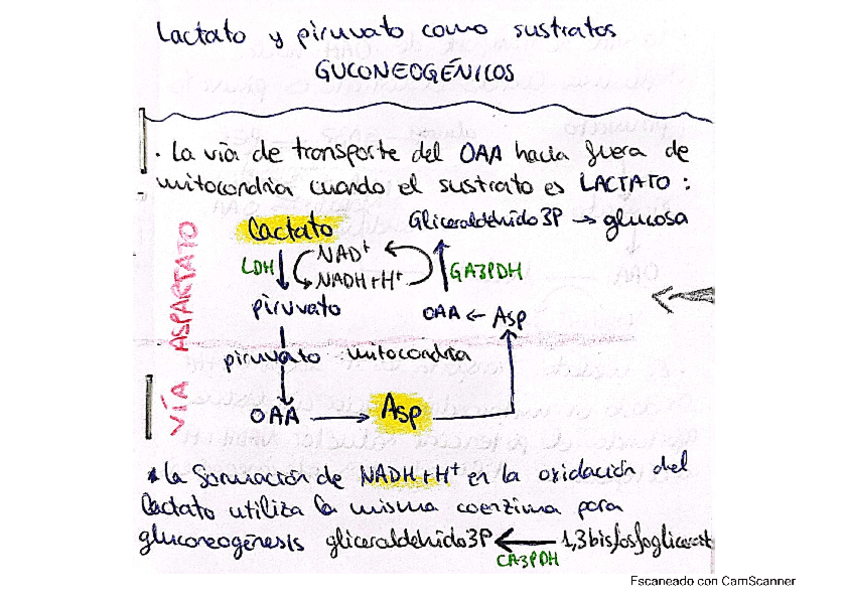 Lactato y piruvato como sustratos
GUCONEOGÉNICOS
· La vía de transporte del OAA hacia fuera de
mitocondria cuando el sustrato es LACTATO :
VÍA ASPARTATO
Lactato
Gliceraldehido3P → glucosa
LDH
NAD+
NADH+H+
GA3PDH
piruvato
OAA ← Asp
piruvato mitocondria
OAA → Asp
* La formación de NADH+H+ en la oxidación del
lactato utiliza la misma coenzima para
gluconeogénesis gliceraldehido3P ← 1,3bisfosfoglicerat
GA3PDH
Escaneado con CamScanner